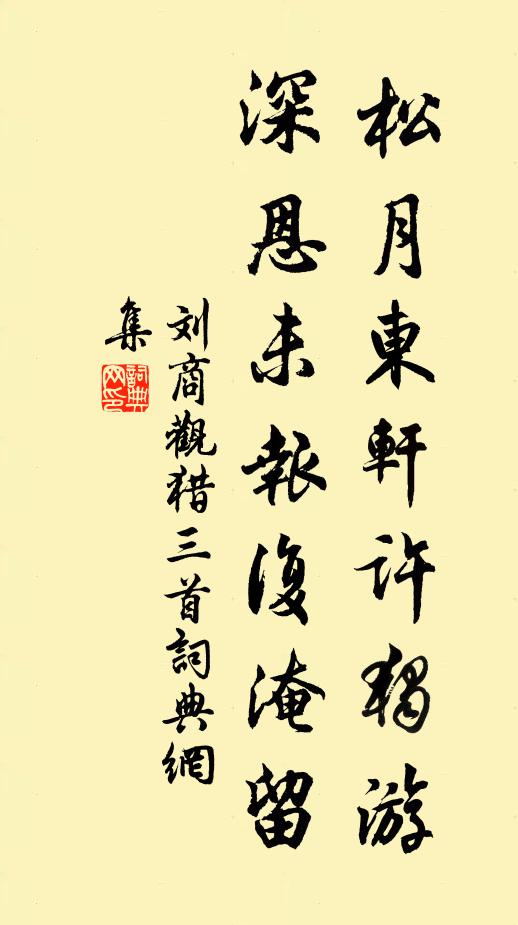 松月東軒許獨游
深恩未報復淹留
刘商觀猎三首詞典網
集
詞典網印